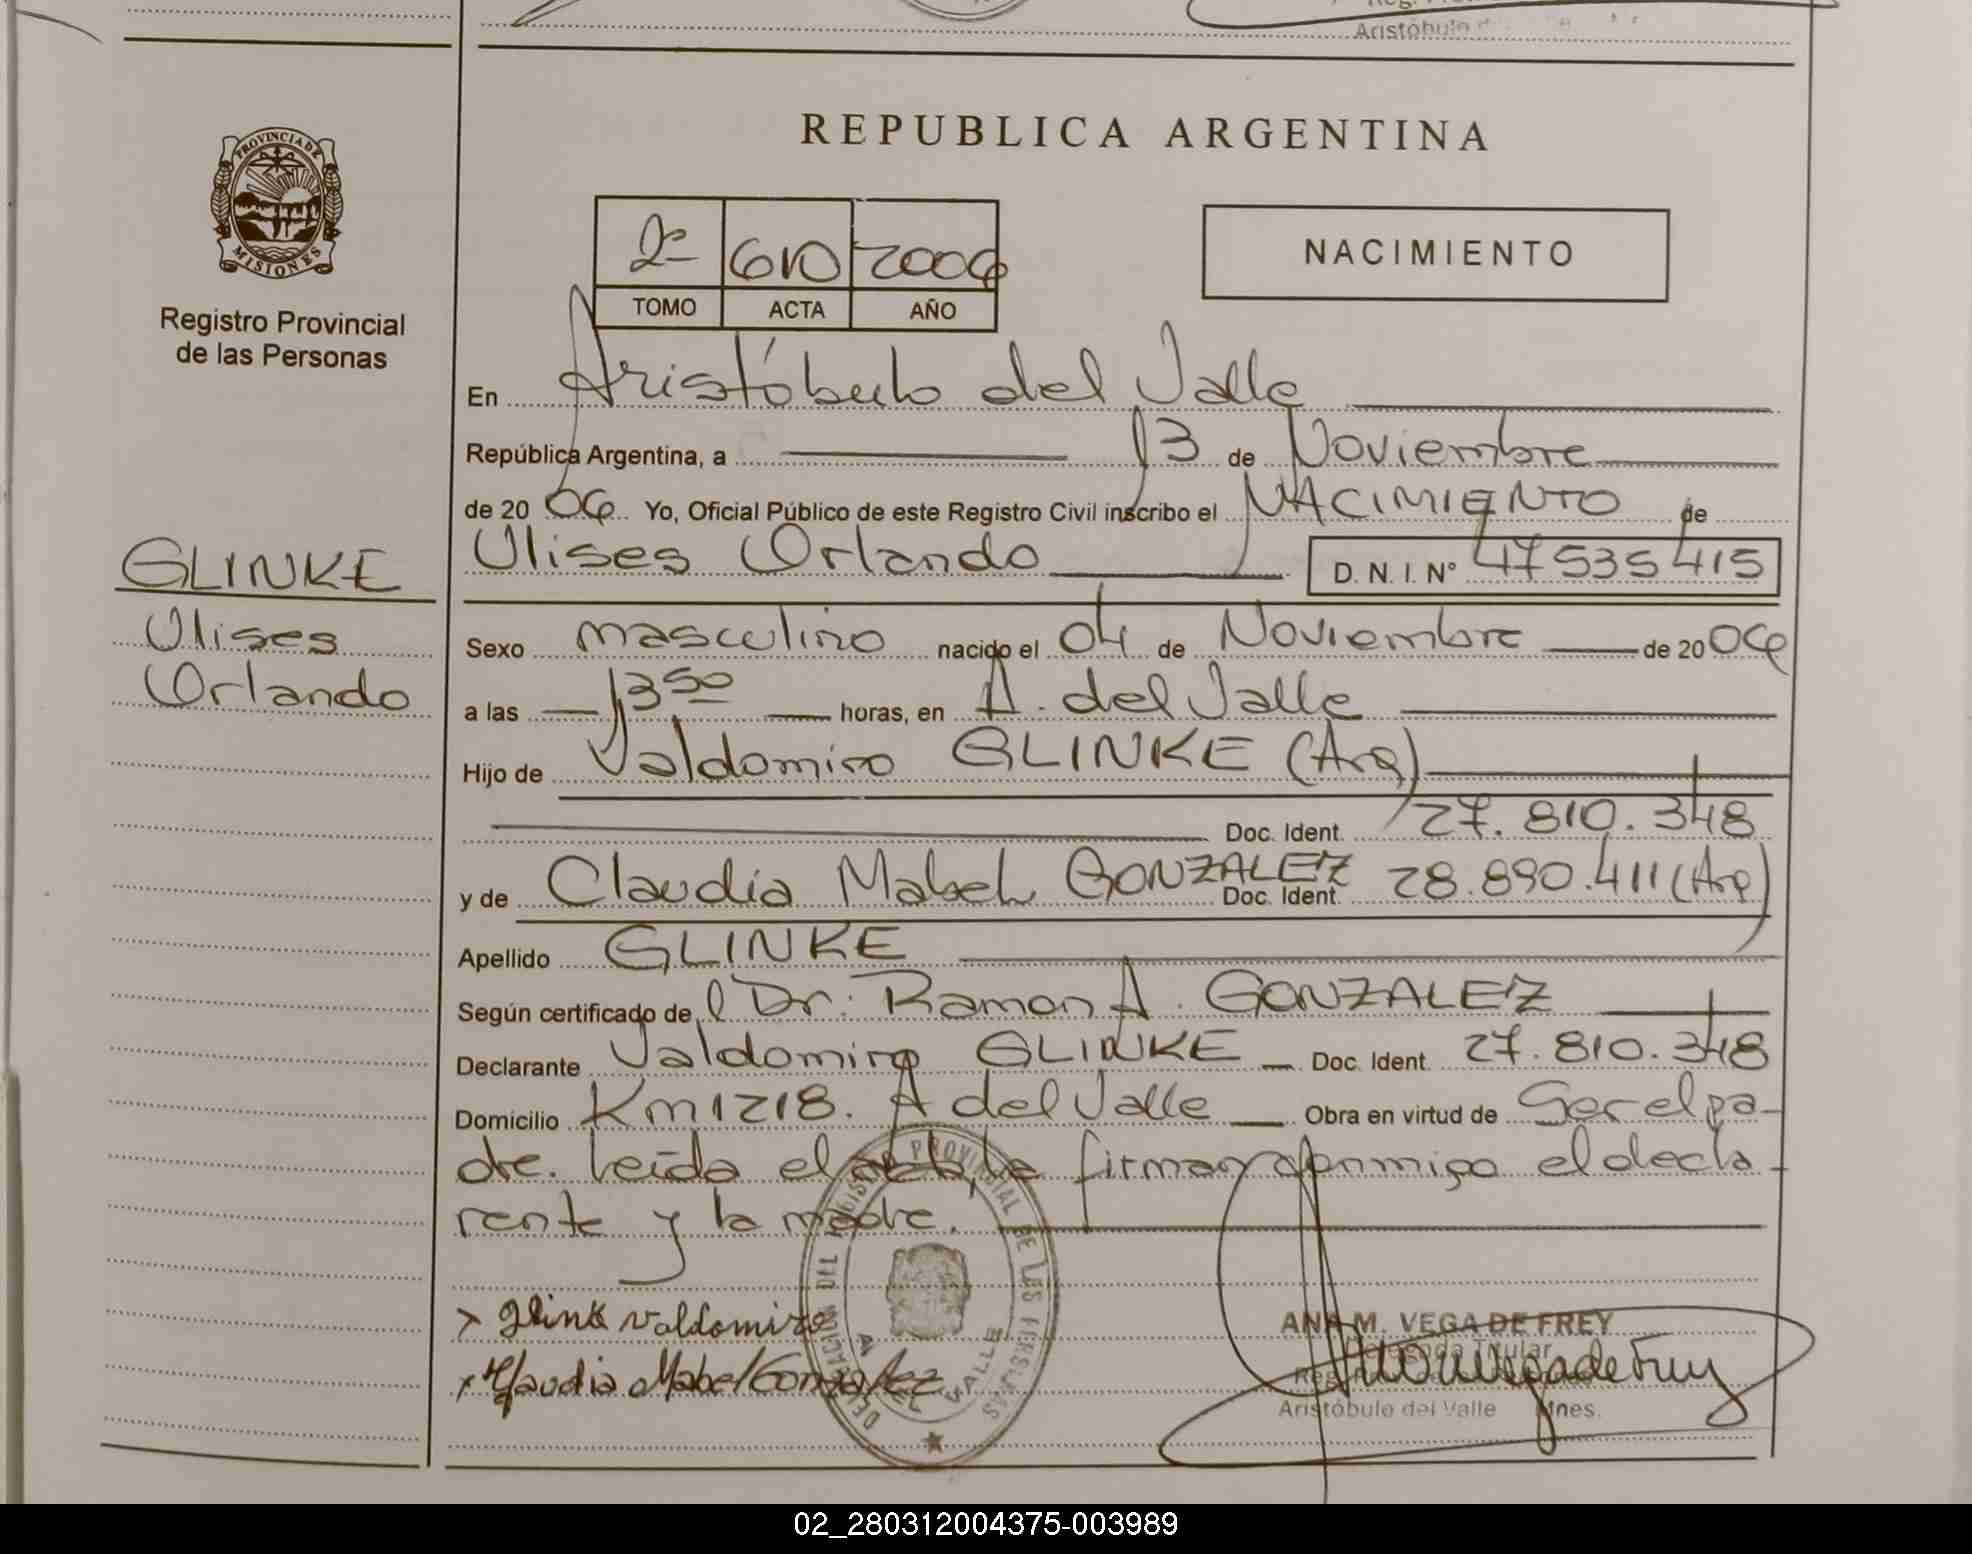 Aristóbulo
PROVINCIA DE
MISIONES
Registro Provincial
de las Personas
REPUBLICA ARGENTINA
2º 610 2006
TOMO ACTA AÑO
NACIMIENTO
En Aristóbulo del Valle
República Argentina, a 13 de Noviembre
de 20 06 Yo, Oficial Público de este Registro Civil inscribo el NACIMIENTO de
GLINKE Ulises Orlando D. N. I. Nº 47535415
Ulises Sexo masculino nacido el 04 de Noviembre de 20 06
Orlando a las 13 50 horas, en A. del Valle
Hijo de Valdomiro GLINKE (Arg)
Doc. Ident. 27.810.348
y de Claudia Mabel GONZALEZ Doc. Ident. 28.890.411 (Arg)
Apellido GLINKE
Según certificado de l Dr. Ramon A. GONZALEZ
Declarante Valdomiro GLINKE Doc. Ident. 27.810.348
Domicilio Km 1218. A del Valle Obra en virtud de Ser el pa-
dre. Leída el acta, la firman conmigo el decla-
rante y la madre.
DELEGACION DEL REGISTRO PROVINCIAL DE LAS PERSONAS
A DEL VALLE
Glink Valdomiro
Claudia Mabel Gonzalez
ANA M. VEGA DE FREY
Delegada Titular
Aristóbulo del Valle Mnes.
02_280312004375-003989